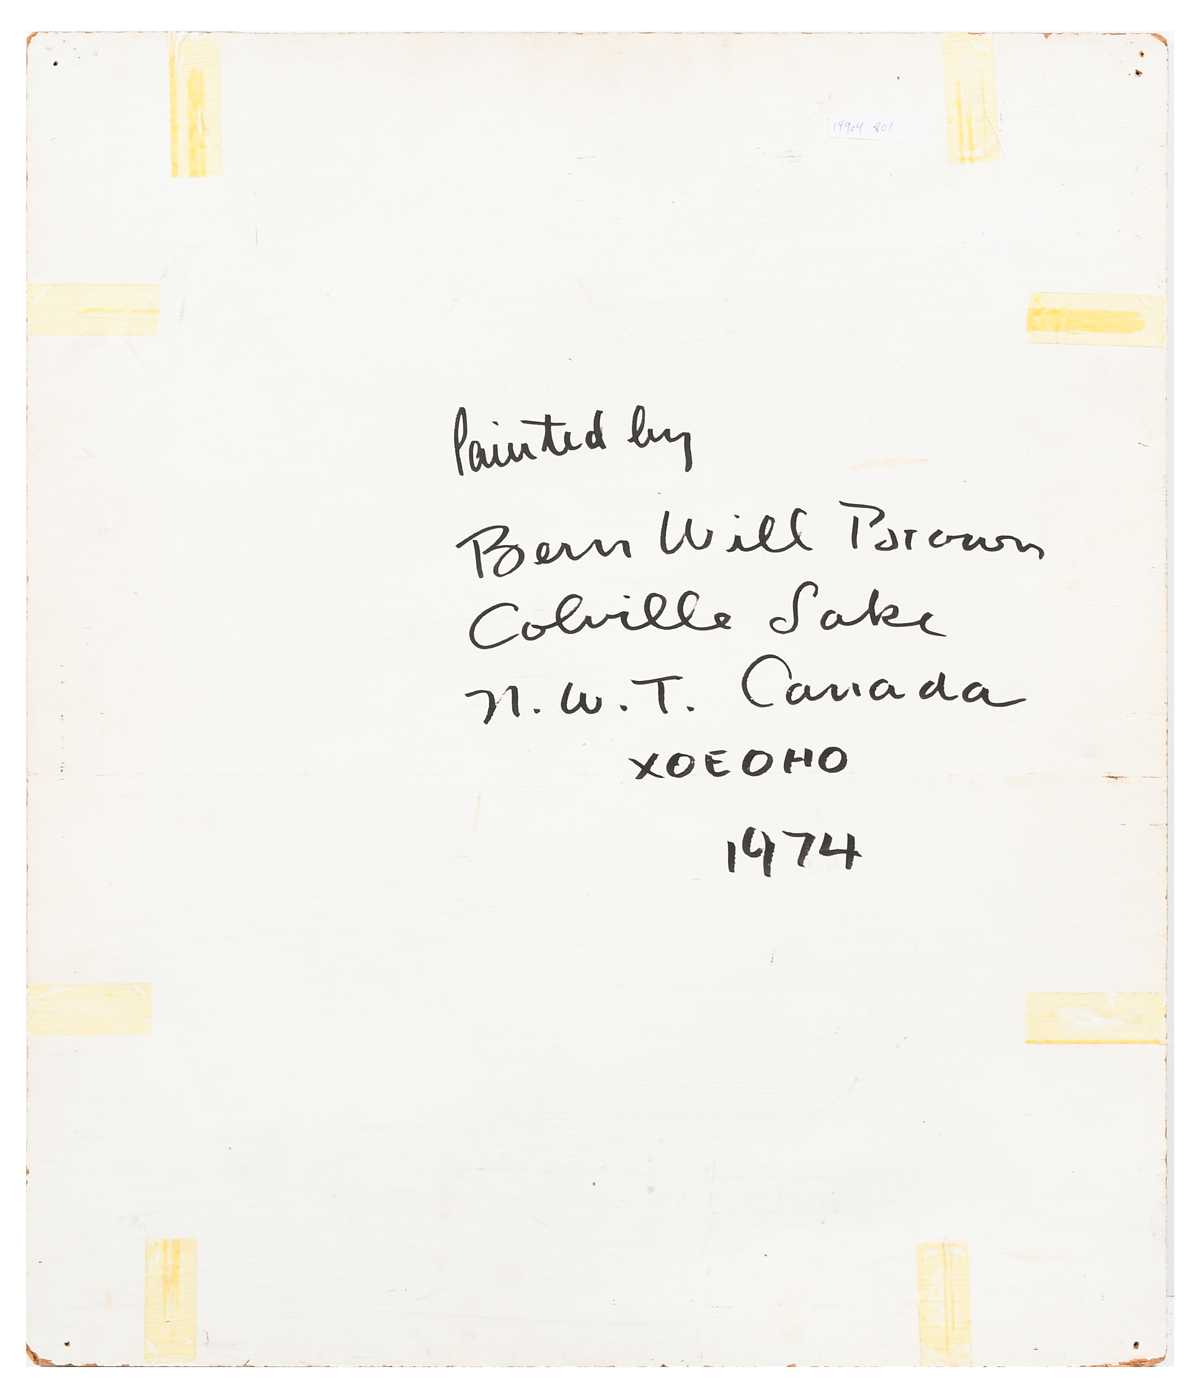 14904 801
Painted by
Bern Will Brown
Colville Lake
N.W.T. Canada
XOEOHO
1974